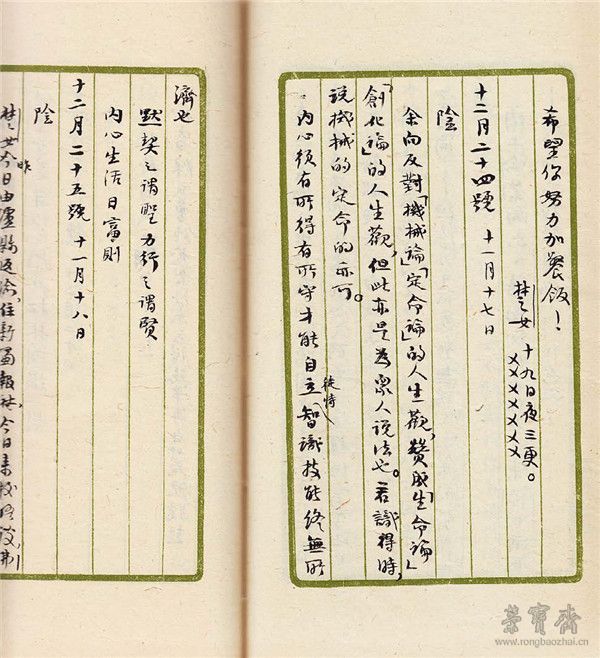 希望你努力加餐飯！
楚女 十九日夜三更。
××××××
十二月二十四號 十一月十七日
陰
余向反對「機械論」「定命論」的人生觀，贊成「生命論」
「創化論」的人生觀，但此亦是為眾人說法也。若識得時，
說機械的定命的亦可。
內心須有所得有所守才能自立，徒恃智識技能終無所
濟也
默契之謂聖力行之謂賢
內心生活日富則
十二月二十五號 十一月十八日
陰
楚女昨今日由瀘縣返渝，住新蜀報社，今日來校
榮寶齋
www.rongbaozhai.cn